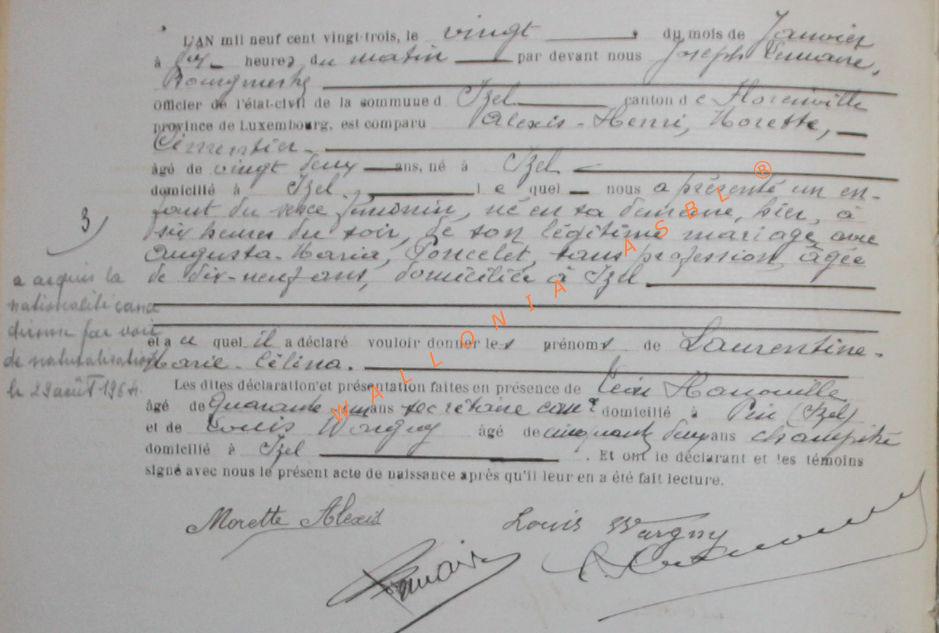 L'AN mil neuf cent vingt-trois, le vingt du mois de Janvier
à dix heures du matin par devant nous Joseph Lemaire,
Bourgmestre
Officier de l'état-civil de la commune d'Izel canton de Florenville
province de Luxembourg, est comparu Alexis-Henri, Morette,
Cimentier
âgé de vingt deux ans, né à Izel
domicilié à Izel le quel nous a présenté un en-
fant du sexe féminin, né en sa demeure, hier, à
six heures du soir, de son légitime mariage avec
Augusta-Maria, Poncelet, sans profession, âgée
de dix-neuf ans, domiciliée à Izel
et a u quel il a déclaré vouloir donner les prénoms de Laurentine-
Marie-Célina.
Les dites déclaration et présentation faites en présence de Léon
âgé de quarante ans secrétaire comal domicilié à Pin (Izel)
et de Louis Wargny âgé de cinquante deux ans champêtre
domicilié à Izel . Et ont le déclarant et les témoins
signé avec nous le présent acte de naissance après qu'il leur en a été fait lecture.
3
a acquis la
nationalité cana
dienne par voie
de naturalisation
le 29 août 1964.
Morette Alexis Louis Wargny
Lemaire
WALLONIA ASBL ®